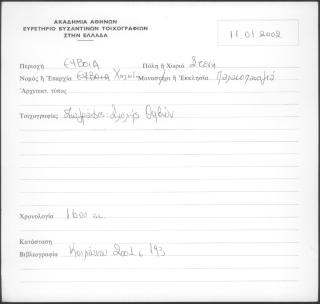 ΑΚΑΔΗΜΙΑ ΑΘΗΝΩΝ
ΕΥΡΕΤΗΡΙΟ ΒΥΖΑΝΤΙΝΩΝ ΤΟΙΧΟΓΡΑΦΙΩΝ
ΣΤΗΝ ΕΛΛΑΔΑ
11.01.2002
Περιοχή ΕΥΒΟΙΑ Πόλη ή Χωριό Στενή
Νομός ή Επαρχία ΕΥΒΟΙΑ Μοναστήρι ή Εκκλησία
Αρχιτεκτ. τύπος
Τοιχογραφίες Ζωγράφος: Σχολής Θηβών
Χρονολογία 1600 αι.
Κατάσταση
Βιβλιογραφία 2001 σ 193